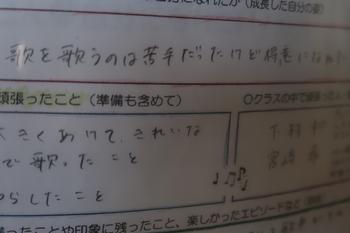 になれたか（成長した自分の姿）
歌を歌うのは苦手だったけど得意になれた
頑張ったこと（準備も含めて）
○クラスの中で頑張った人
大きくあけて、きれいな
で歌ったこと
らしたこと
ったことや印象に残ったこと、楽しかったエピソードなど